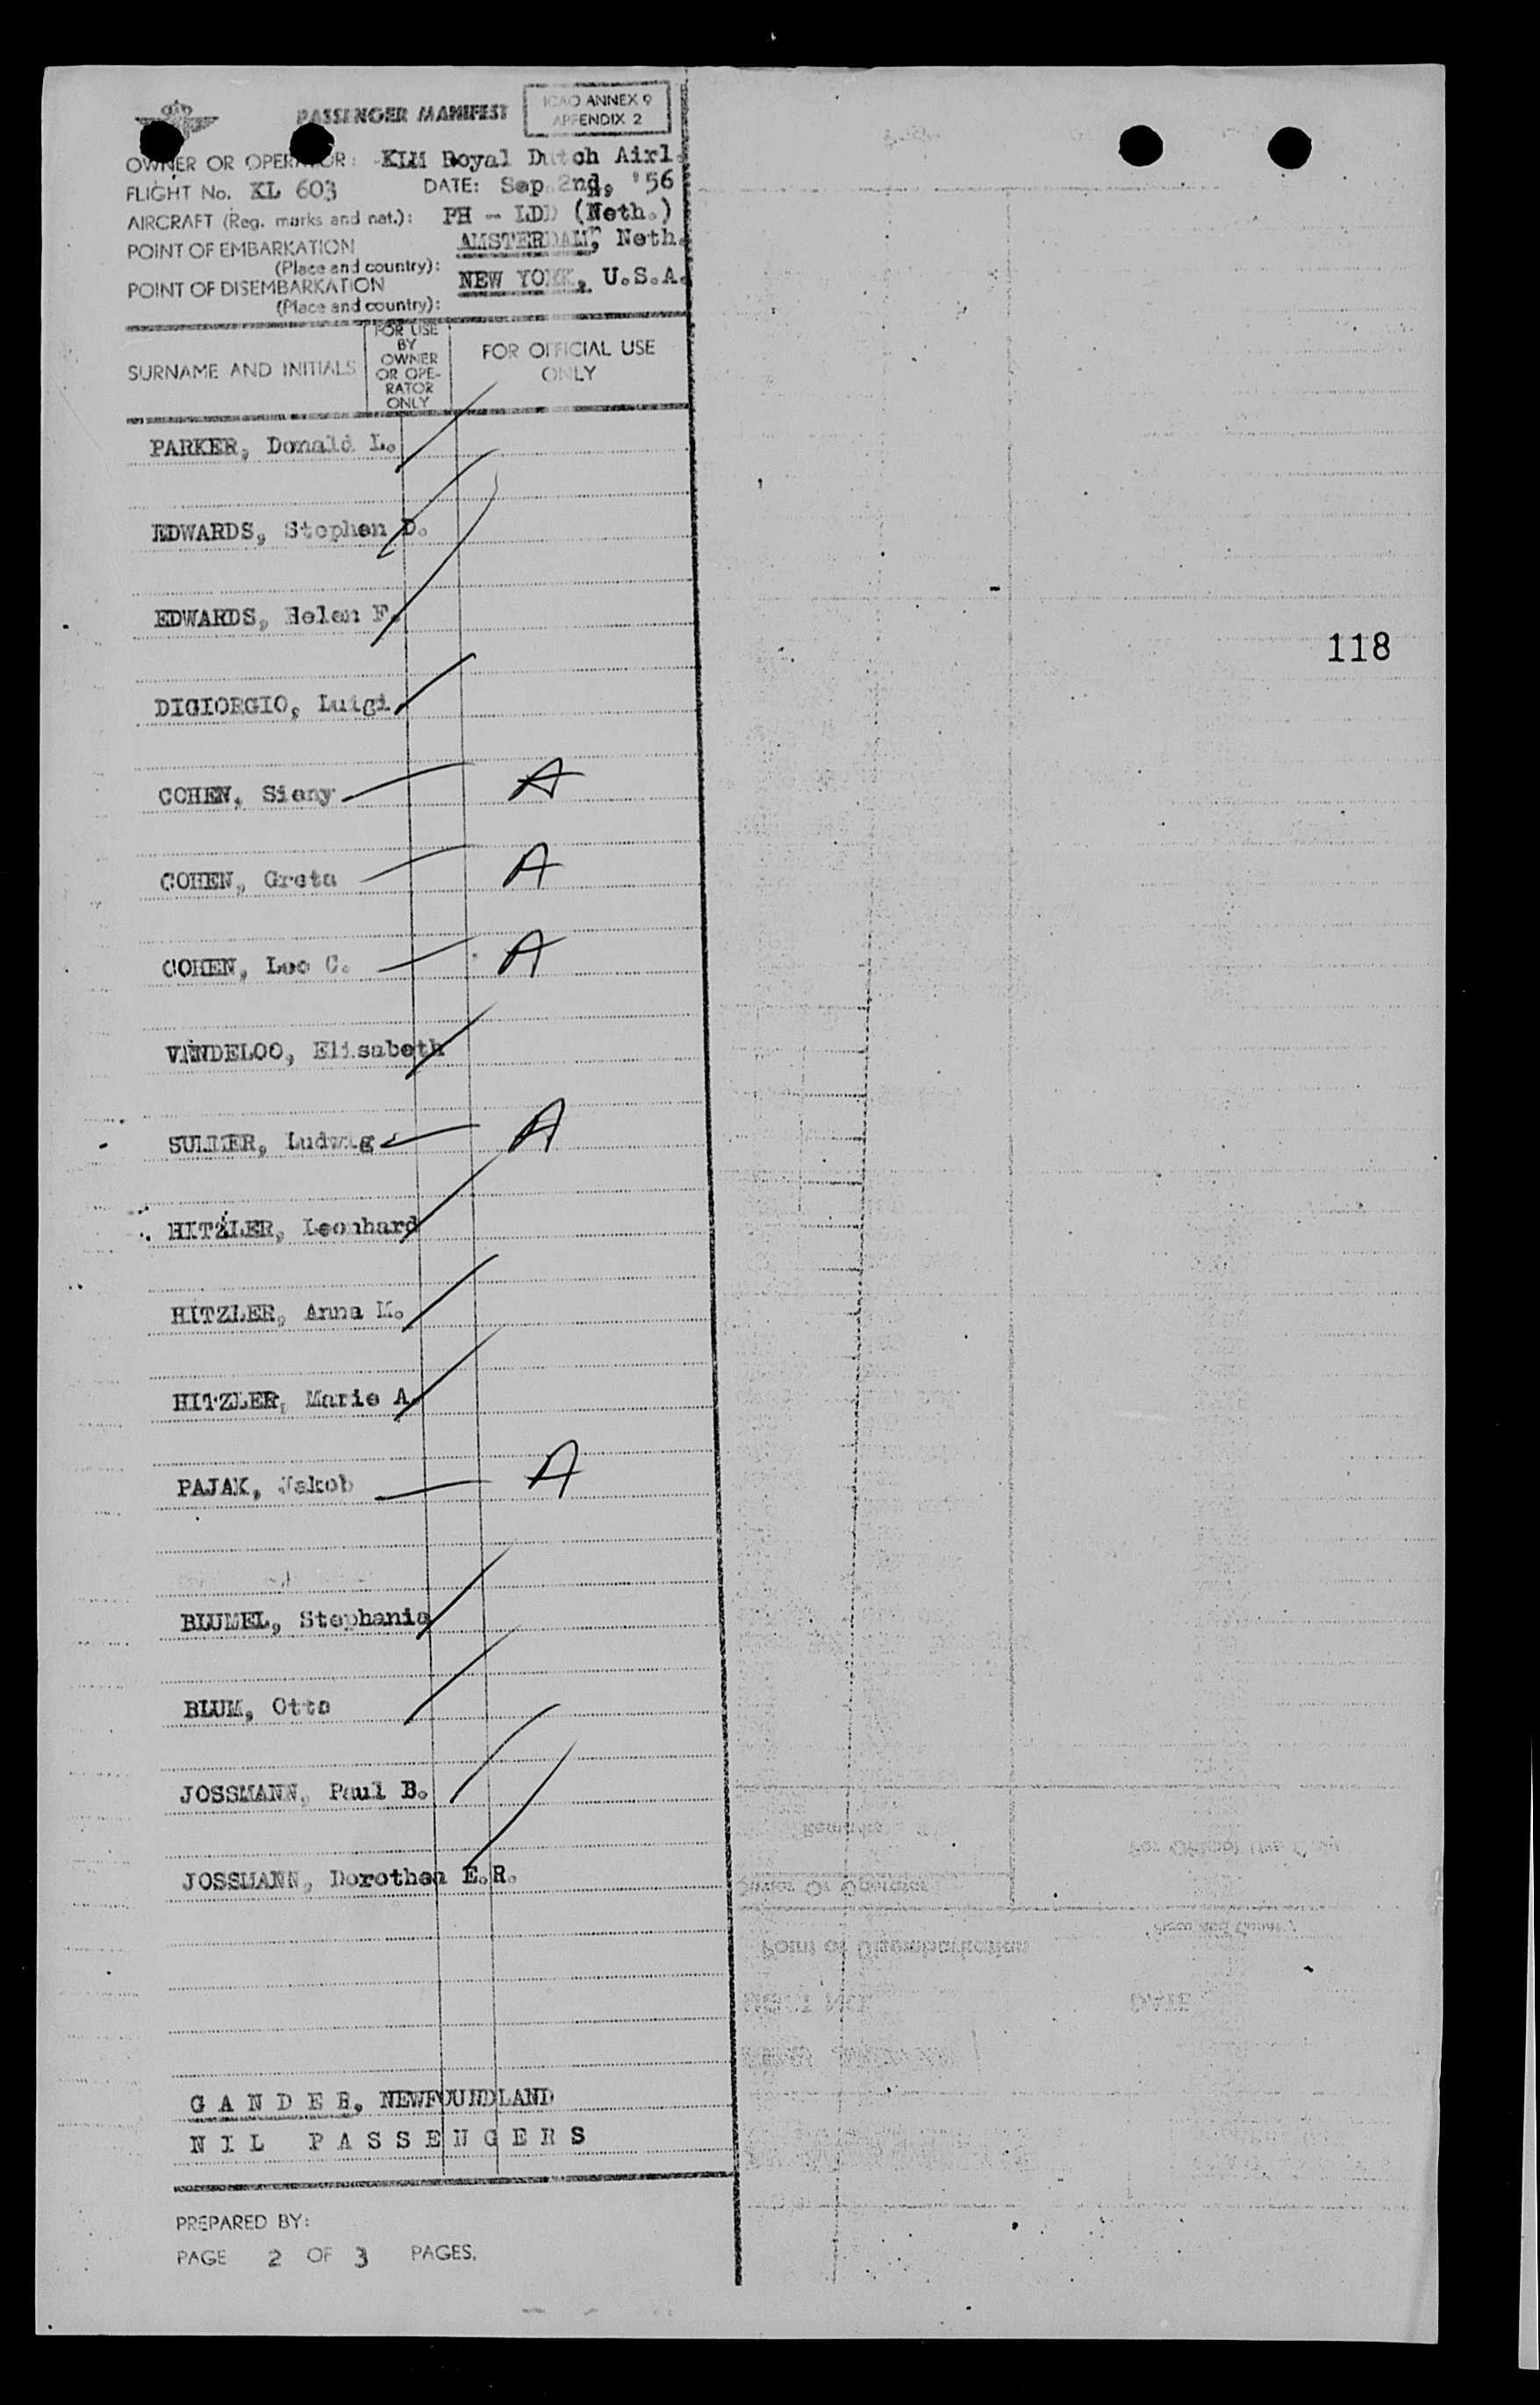 PASSENGER MANIFEST
ICAO ANNEX 9
APPENDIX 2
OWNER OR OPERATOR: KLM Royal Dutch Airl.
FLIGHT No. KL 603 DATE: Sep 2nd, '56
AIRCRAFT (Reg. marks and nat.): PH - LDD (Neth.)
POINT OF EMBARKATION
(Place and country): AMSTERDAM, Neth.
POINT OF DISEMBARKATION
(Place and country): NEW YORK, U.S.A.
SURNAME AND INITIALS
FOR USE
BY
OWNER
OR OPE-
RATOR
ONLY
FOR OFFICIAL USE
ONLY
PARKER, Donald L.
EDWARDS, Stephen D.
EDWARDS, Helen F.
118
DIGIORGIO, Luigi
COHEN, Sieny A
COHEN, Greta A
COHEN, Leo C. A
VANDELOO, Elisabeth
Ludwig A
HITZLER, Leonhard
HITZLER, Anna M.
HITZLER, Marie A.
PAJAK, Jakob A
BLUMEL, Stephanie
BLUM, Otto
JOSSMANN, Paul B.
JOSSMANN, Dorothea E.R.
Remarks
For Official Use Only
Owner Or Operator
(Place and Country)
Point of Disembarkation
DATE
GANDER, NEWFOUNDLAND
NIL PASSENGERS
PREPARED BY:
PAGE 2 OF 3 PAGES.